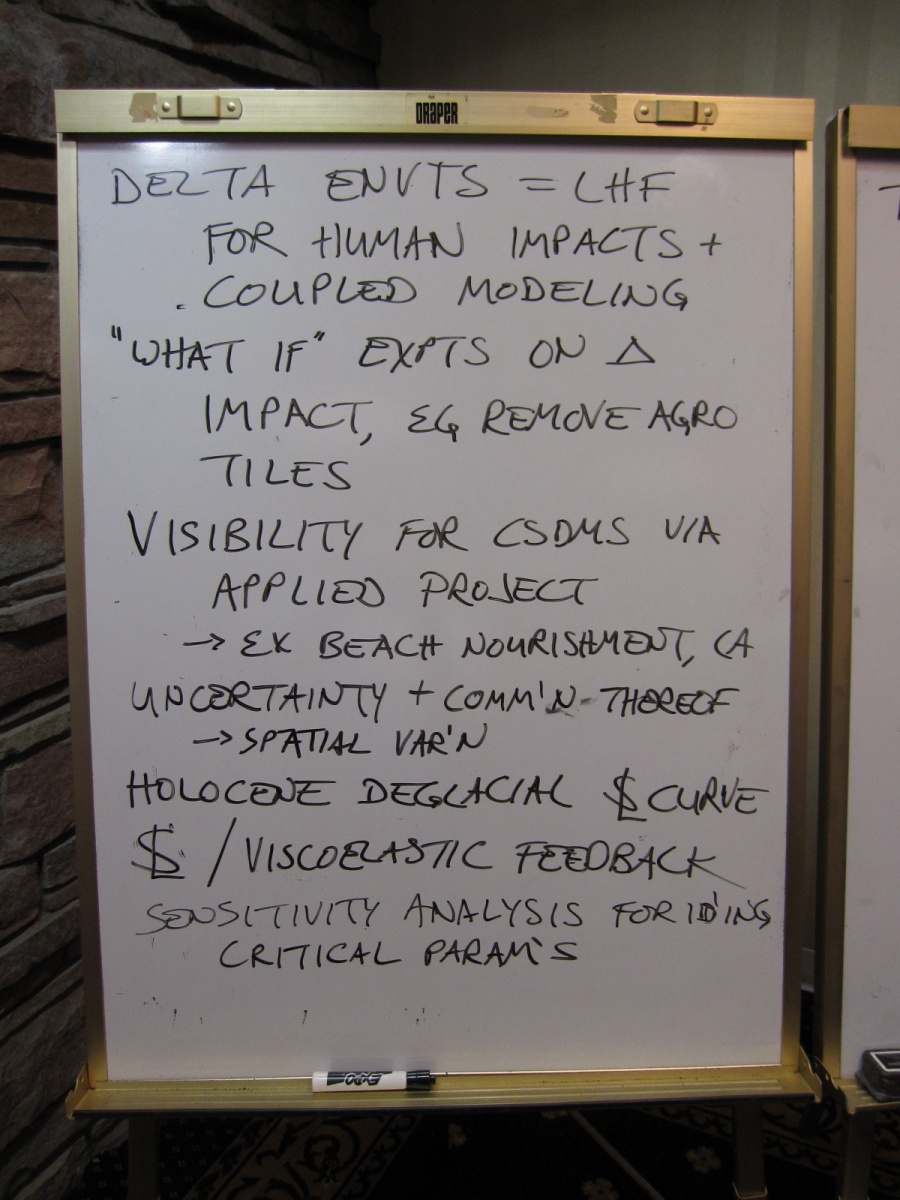 DRAPER
DELTA ENVTS = LHF
FOR HUMAN IMPACTS +
COUPLED MODELING
"WHAT IF" EXPTS ON Δ
IMPACT, EG REMOVE AGRO
TILES
VISIBILITY FOR CSDMS VIA
APPLIED PROJECT
→ EX BEACH NOURISHMENT, CA
UNCERTAINTY + COMM'N THEREOF
→ SPATIAL VAR'N
HOLOCENE DEGLACIAL SL CURVE
SL / VISCOELASTIC FEEDBACK
SENSITIVITY ANALYSIS FOR ID'ING
CRITICAL PARAM'S